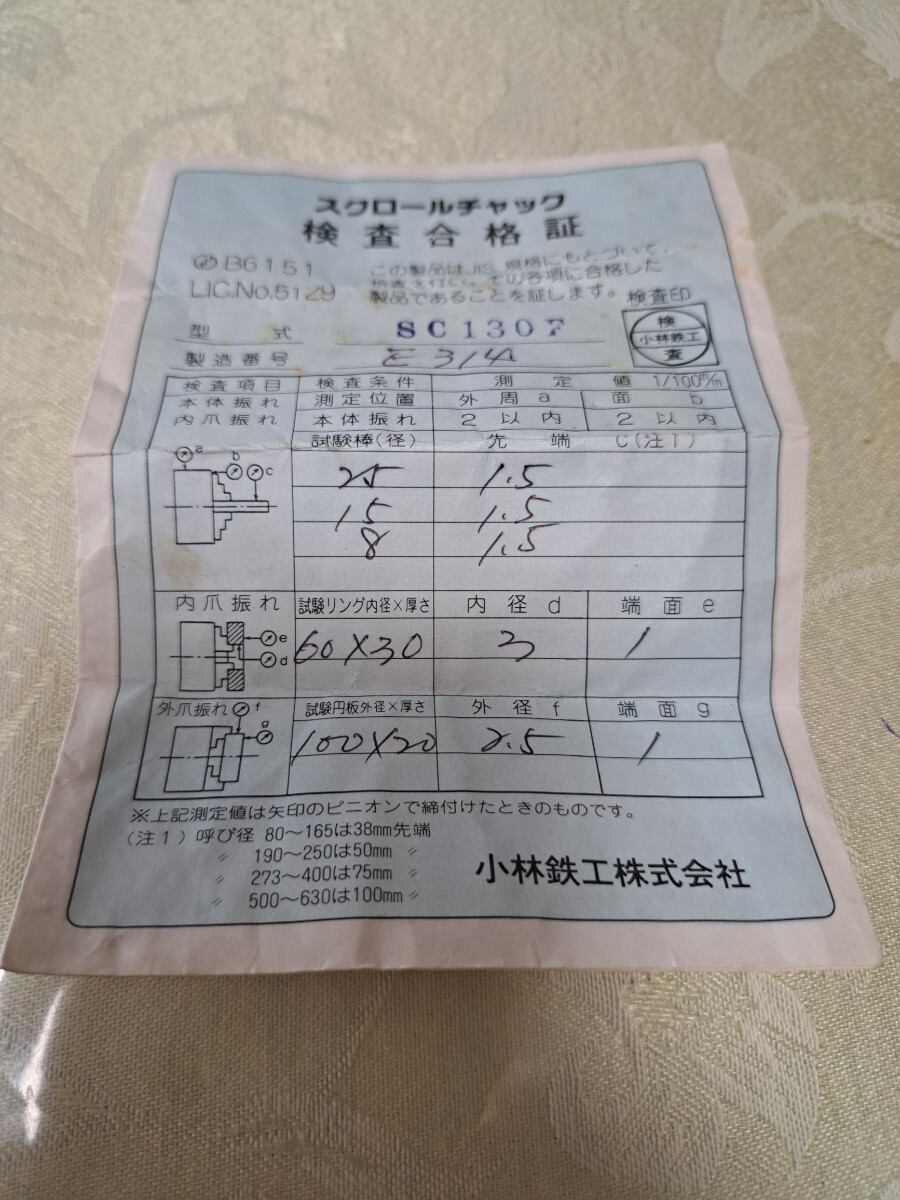 スクロールチャック
検査合格証
B6151
LIC.No.5129
この製品はJIS規格にもとづいて、
検査を行い、その各項に合格した
製品であることを証します。
検査印
検
小林鉄工
査
型式 SC130F
製造番号 E314
検査項目 検査条件 測定値 1/100m/m
本体振れ 測定位置 外周a 面b
内爪振れ 本体振れ 2以内 2以内
試験棒(径) 先端 C(注1)
a
b
c
25 1.5
15 1.5
8 1.5
内爪振れ 試験リング内径×厚さ 内径d 端面e
e
d
60×30 3 1
外爪振れ f 試験円板外径×厚さ 外径f 端面g
g
100×20 2.5 1
※上記測定値は矢印のピニオンで締付けたときのものです。
(注1)呼び径 80〜165は38mm先端
〃 190〜250は50mm 〃
〃 273〜400は75mm 〃
〃 500〜630は100mm 〃
小林鉄工株式会社